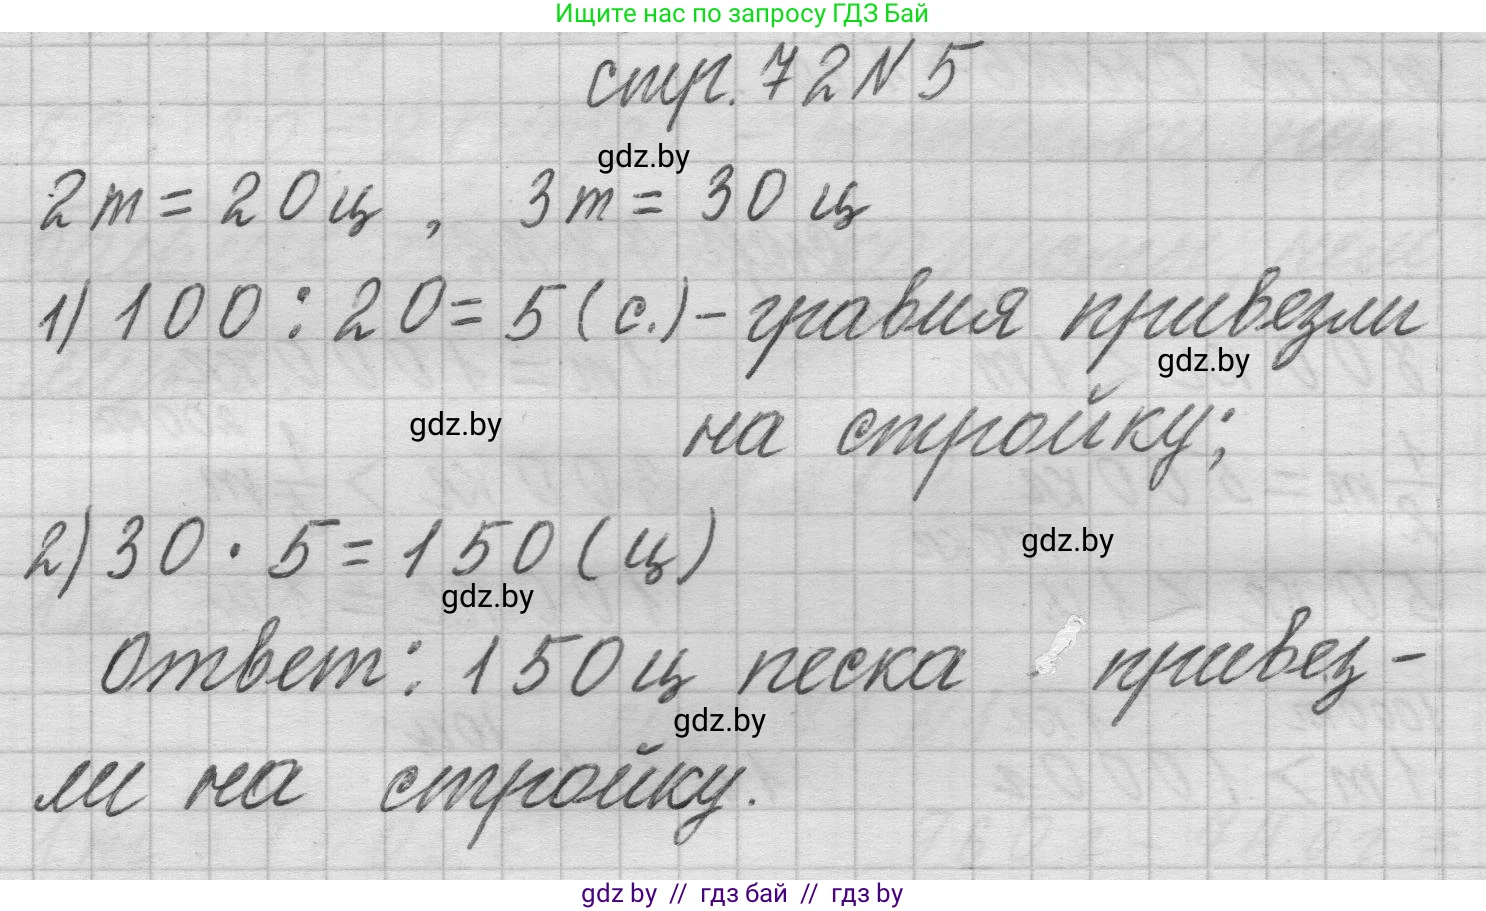 Ищите нас по запросу ГДЗ Бай
стр. 72 N 5
gdz.by
2 т = 20 ц , 3 т = 30 ц
1) 100 : 20 = 5 ( с. ) - гравия привезли
gdz.by
gdz.by
на стройку;
2) 30 · 5 = 150 ( ц )
gdz.by
gdz.by
Ответ: 150 ц песка привез-
gdz.by
ли на стройку.
gdz by // гдз бай // гдз by